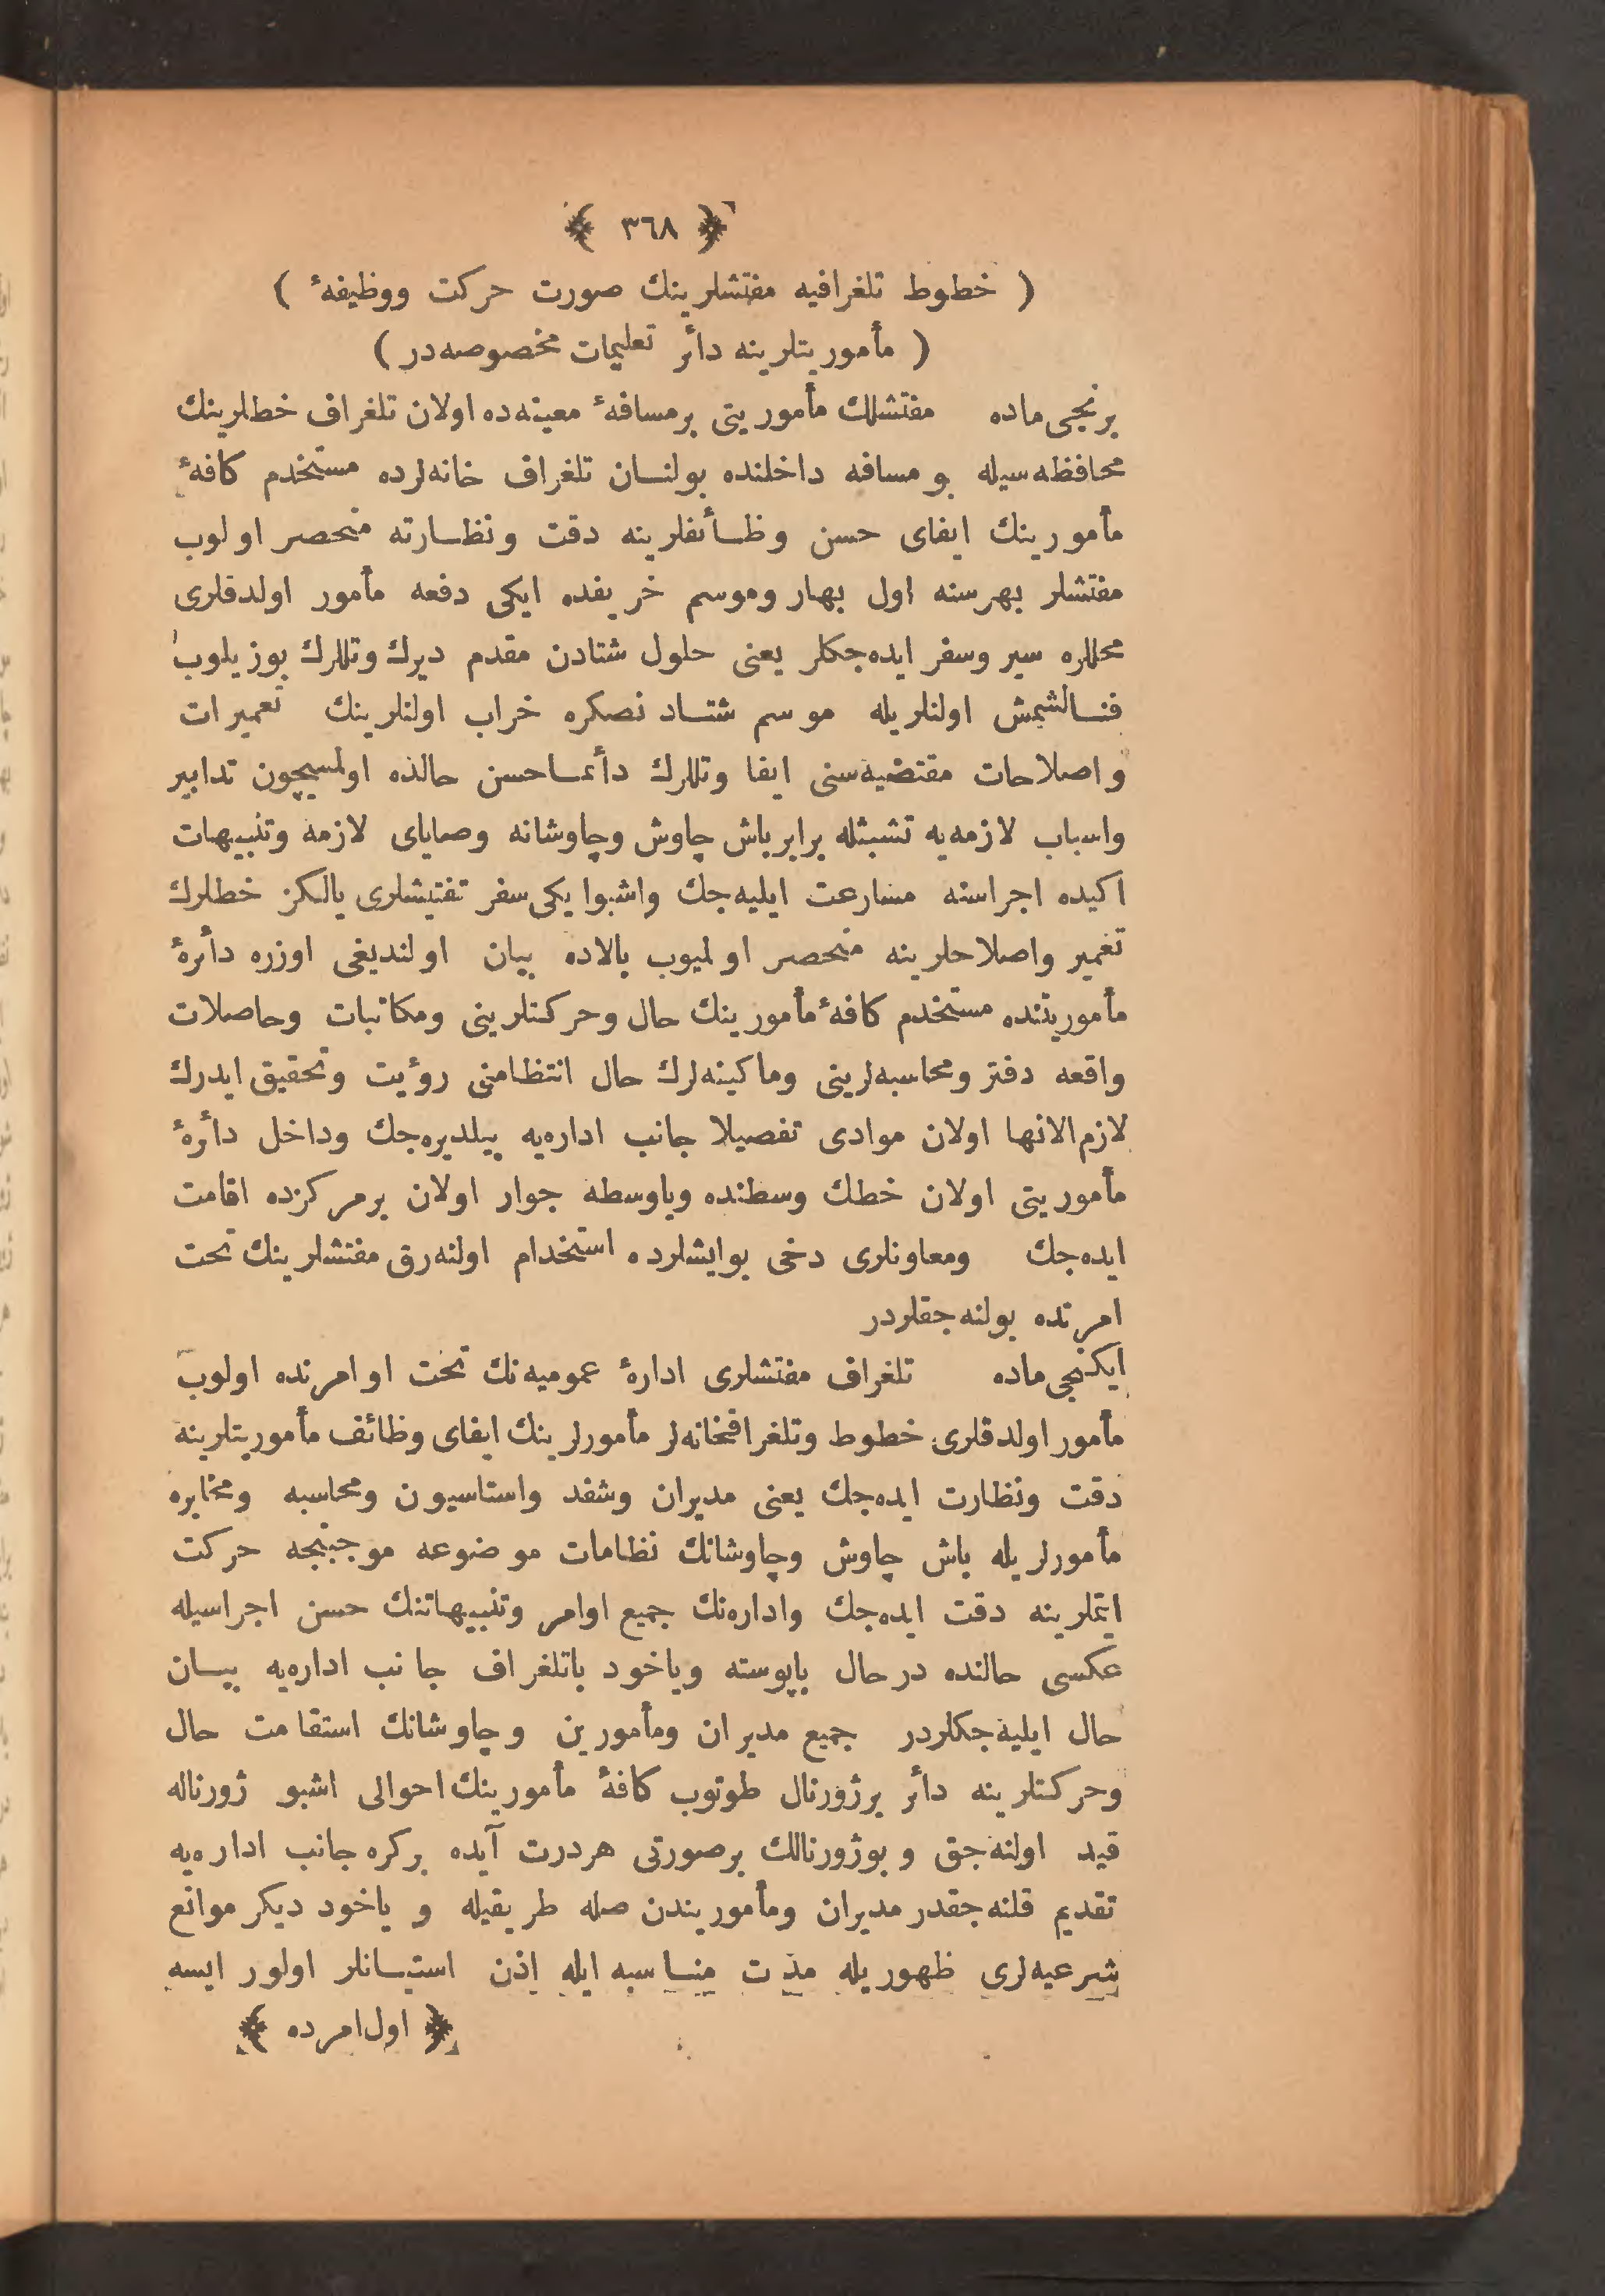 ﴿ ٣٦٨ ﴾
( خطوط تلغرافيه مفتشلرينك صورت حركت ووظيفهٔ )
( مأموريتلرينه دأر تعليمات مخصوصه‌در )
برنجى ماده مفتشلك مأموريتى برمسافهٔ معينه‌ده اولان تلغراف خطلرينك
محافظه‌سيله بو مسافه داخلنده بولنسان تلغراف خانه‌لرده مستخدم كافهٔ
مأمورينك ايفاى حسن وظأئفلرينه دقت ونظارته منحصر اولوب
مفتشلر بهرسنه اول بهار وموسم خريفده ايكى دفعه مأمور اولدقلرى
محللره سير وسفر ايده‌جكلر يعنى حلول شتادن مقدم ديرك وتللرك بوزيلوب
فنالشمش اولنلريله موسم شتاد نصكره خراب اولنلرينك تعميرات
واصلاحات مقتضيه‌سنى ايفا وتللرك دأئما حسن حالذه اولمسيچون تدابير
واسباب لازمه‌يه تشبثله برابر باش چاوش وچاوشانه وصاياى لازمه وتنبيهات
اكيده اجراسنه مسارعت ايليه‌جك واشبوا يكى سفر تفتيشلرى يالكز خطلرك
تعمير واصلاحلرينه منحصر اولميوب بالاده بيان اولنديغى اوزره دأرهٔ
مأموريتنده مستخدم كافهٔ مأمورينك حال وحركتلرينى ومكاتبات وحاصلات
واقعه دفتر ومحاسبه‌لرينى وماكينه‌لرك حال انتظامنى رؤيت وتحقيق ايدرك
لازم‌الانها اولان موادى تفصيلا جانب اداره‌يه بيلديره‌جك وداخل دأرهٔ
مأموريتى اولان خطك وسطنده وياوسطه جوار اولان برمركزده اقامت
ايده‌جك ومعاونلرى دخى بوايشلرده استخدام اولنه‌رق مفتشلرينك تحت
امرنده بولنه‌جقلردر
ايكنجى ماده تلغراف مفتشلرى ادارهٔ عموميه‌نك تحت اوامرنده اولوب
مأمور اولدقلرى خطوط وتلغرافخانه‌لر مأمورلرينك ايفاى وظائف مأموريتلرينه
دقت ونظارت ايده‌جك يعنى مديران وشفد واستاسيون ومحاسبه ومخابره
مأمورلريله باش چاوش وچاوشانك نظامات موضوعه موجبنجه حركت
ايتملرينه دقت ايده‌جك واداره‌نك جميع اوامر وتنبيهاتنك حسن اجراسيله
عكسى حالنده درحال باپوسته وياخود باتلغراف جانب اداره‌يه بيسان
حال ايليه‌جكلردر جميع مديران ومأمورين وچاوشانك استقامت حال
وحركتلرينه دأر برژورنال طوتوب كافهٔ مأمورينك احوالى اشبو ژورناله
قيد اولنه‌جق وبوژورنالك برصورتى هردرت آيده بركره جانب اداره‌يه
تقديم قلنه‌جقدر مديران ومأموريندن صله طريقيله وياخود ديكر موانع
شرعيه‌لرى ظهوريله مدت مناسبه ايله اذن استيسانلر اولور ايسه
﴿ اول‌امرده ﴾